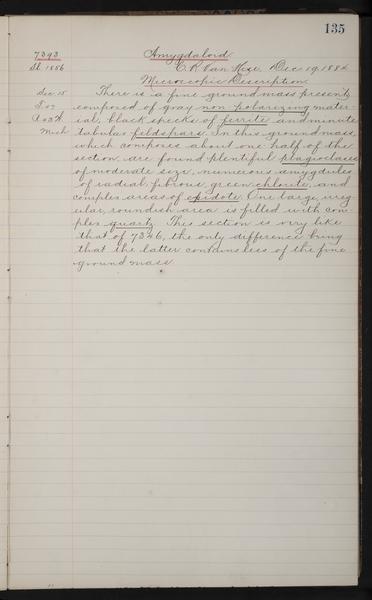 135
7393 Amygdaloid.
Sl. 1886 C. R. Van Hise, Dec. 19, 1884
Microscopic Description
Sec 15 There is a fine ground mass present,
composed of gray non-polarizing mater-
ial, black specks of ferrite and minute
Mich tabular feldspars. In this ground mass,
which composes about one half of the
section, are found plentiful plagioclases
of moderate size, numerous amygdules
of radial, fibrous, green chlorite, and
complex areas of epidote. One large, irreg-
ular, roundish area is filled with com-
plex quartz. This section is very like
that of 7346, the only difference being
that the latter contains less of the fine
ground mass.